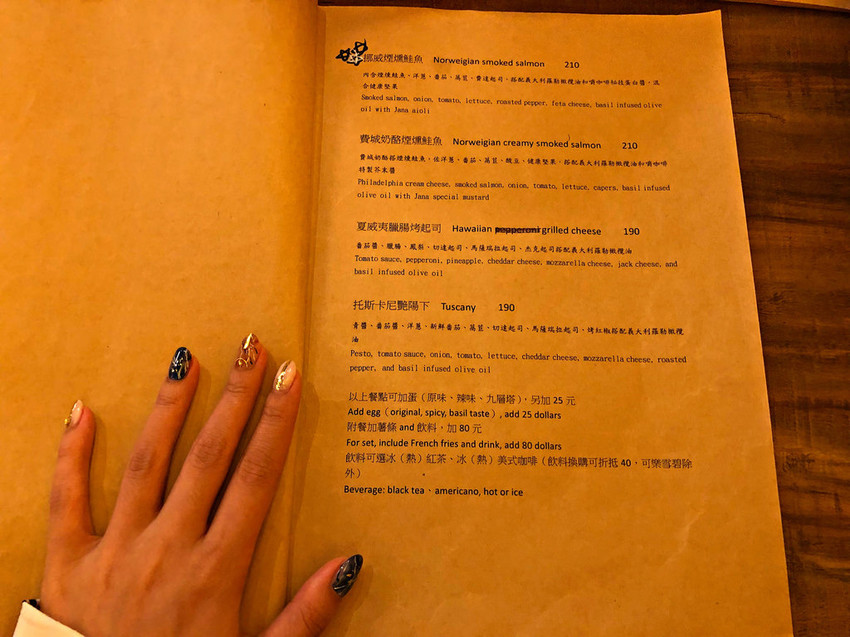 挪威煙燻鮭魚 Norweigian smoked salmon 210
內含煙燻鮭魚、洋蔥、番茄、萵苣、費達起司、搭配義大利羅勒橄欖油和嚼咖啡秘技蛋白醬,混
合健康堅果
Smoked salmon, onion, tomato, lettuce, roasted pepper, feta cheese, basil infused olive
oil with Jana aioli
費城奶酪煙燻鮭魚 Norweigian creamy smoked salmon 210
費城奶酪搭煙燻鮭魚,佐洋蔥、番茄、萵苣、酸豆、健康堅果,搭配義大利羅勒橄欖油和嚼咖啡
特製芥末醬
Philadelphia cream cheese, smoked salmon, onion, tomato, lettuce, capers, basil infused
olive oil with Jana special mustard
夏威夷臘腸烤起司 Hawaiian pepperoni grilled cheese 190
番茄醬、臘腸、鳳梨、切達起司、馬薩瑞拉起司、杰克起司搭配義大利羅勒橄欖油
Tomato sauce, pepperoni, pineapple, cheddar cheese, mozzarella cheese, jack cheese, and
basil infused olive oil
托斯卡尼艷陽下 Tuscany 190
青醬、番茄醬、洋蔥、新鮮番茄、萵苣、切達起司、馬薩瑞拉起司、烤紅椒搭配義大利羅勒橄欖
油
Pesto, tomato sauce, onion, tomato, lettuce, cheddar cheese, mozzarella cheese, roasted
pepper, and basil infused olive oil
以上餐點可加蛋(原味、辣味、九層塔),另加 25 元
Add egg(original, spicy, basil taste), add 25 dollars
附餐加薯條 and 飲料,加 80 元
For set, include French fries and drink, add 80 dollars
飲料可選冰(熱)紅茶、冰(熱)美式咖啡(飲料換購可折抵 40,可樂雪碧除
外)
Beverage: black tea、americano, hot or ice